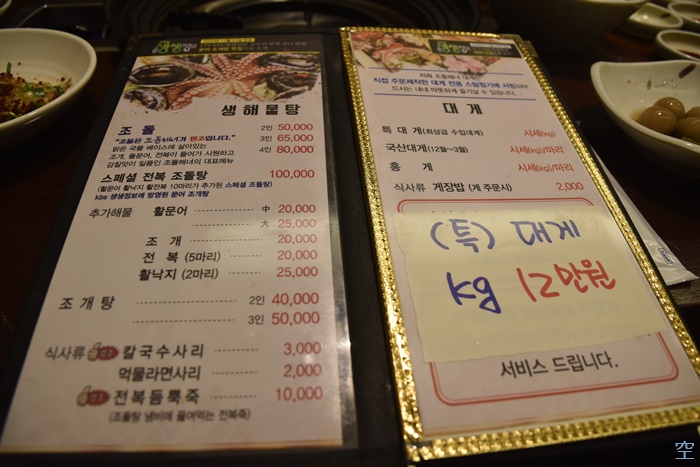 생해물탕
조돌 2인 50,000
"조돌은 조돌해녀가 원조입니다." 3인 65,000
맑은 국물 베이스에 살아있는 4인 80,000
조개, 활문어, 전복이 들어가 시원하고
감칠맛이 일품인 조돌해녀의 대표메뉴
스페셜 전복 조돌탕 100,000
(활문어 활낙지 활전복 10마리가 추가된 스페셜 조돌탕)
kbs 생생정보에 방영된 문어 조개탕
추가해물 활문어 中 20,000
大 25,000
조개 20,000
전복 (5마리) 20,000
활낙지 (2마리) 25,000
조개탕 2인 40,000
3인 50,000
식사류 칼국수사리 3,000
먹물라면사리 2,000
전복듬뿍죽 10,000
(조돌탕 냄비에 끓여먹는 전복죽)
저희 조돌해녀 대게는
직접 주문제작한 대게 전용 스팀찜기에 서빙되어
드시는 내내 따뜻하게 즐기실 수 있습니다.
대게
특대게(최상급 수입대게) 시세(kg)
국산대게(12월~3월) 시세(kg)/마리
홍게 시세(kg)/마리
식사류 게장밥 (게 주문시) 2,000
(특) 대게
kg 12만원
서비스 드립니다.
空